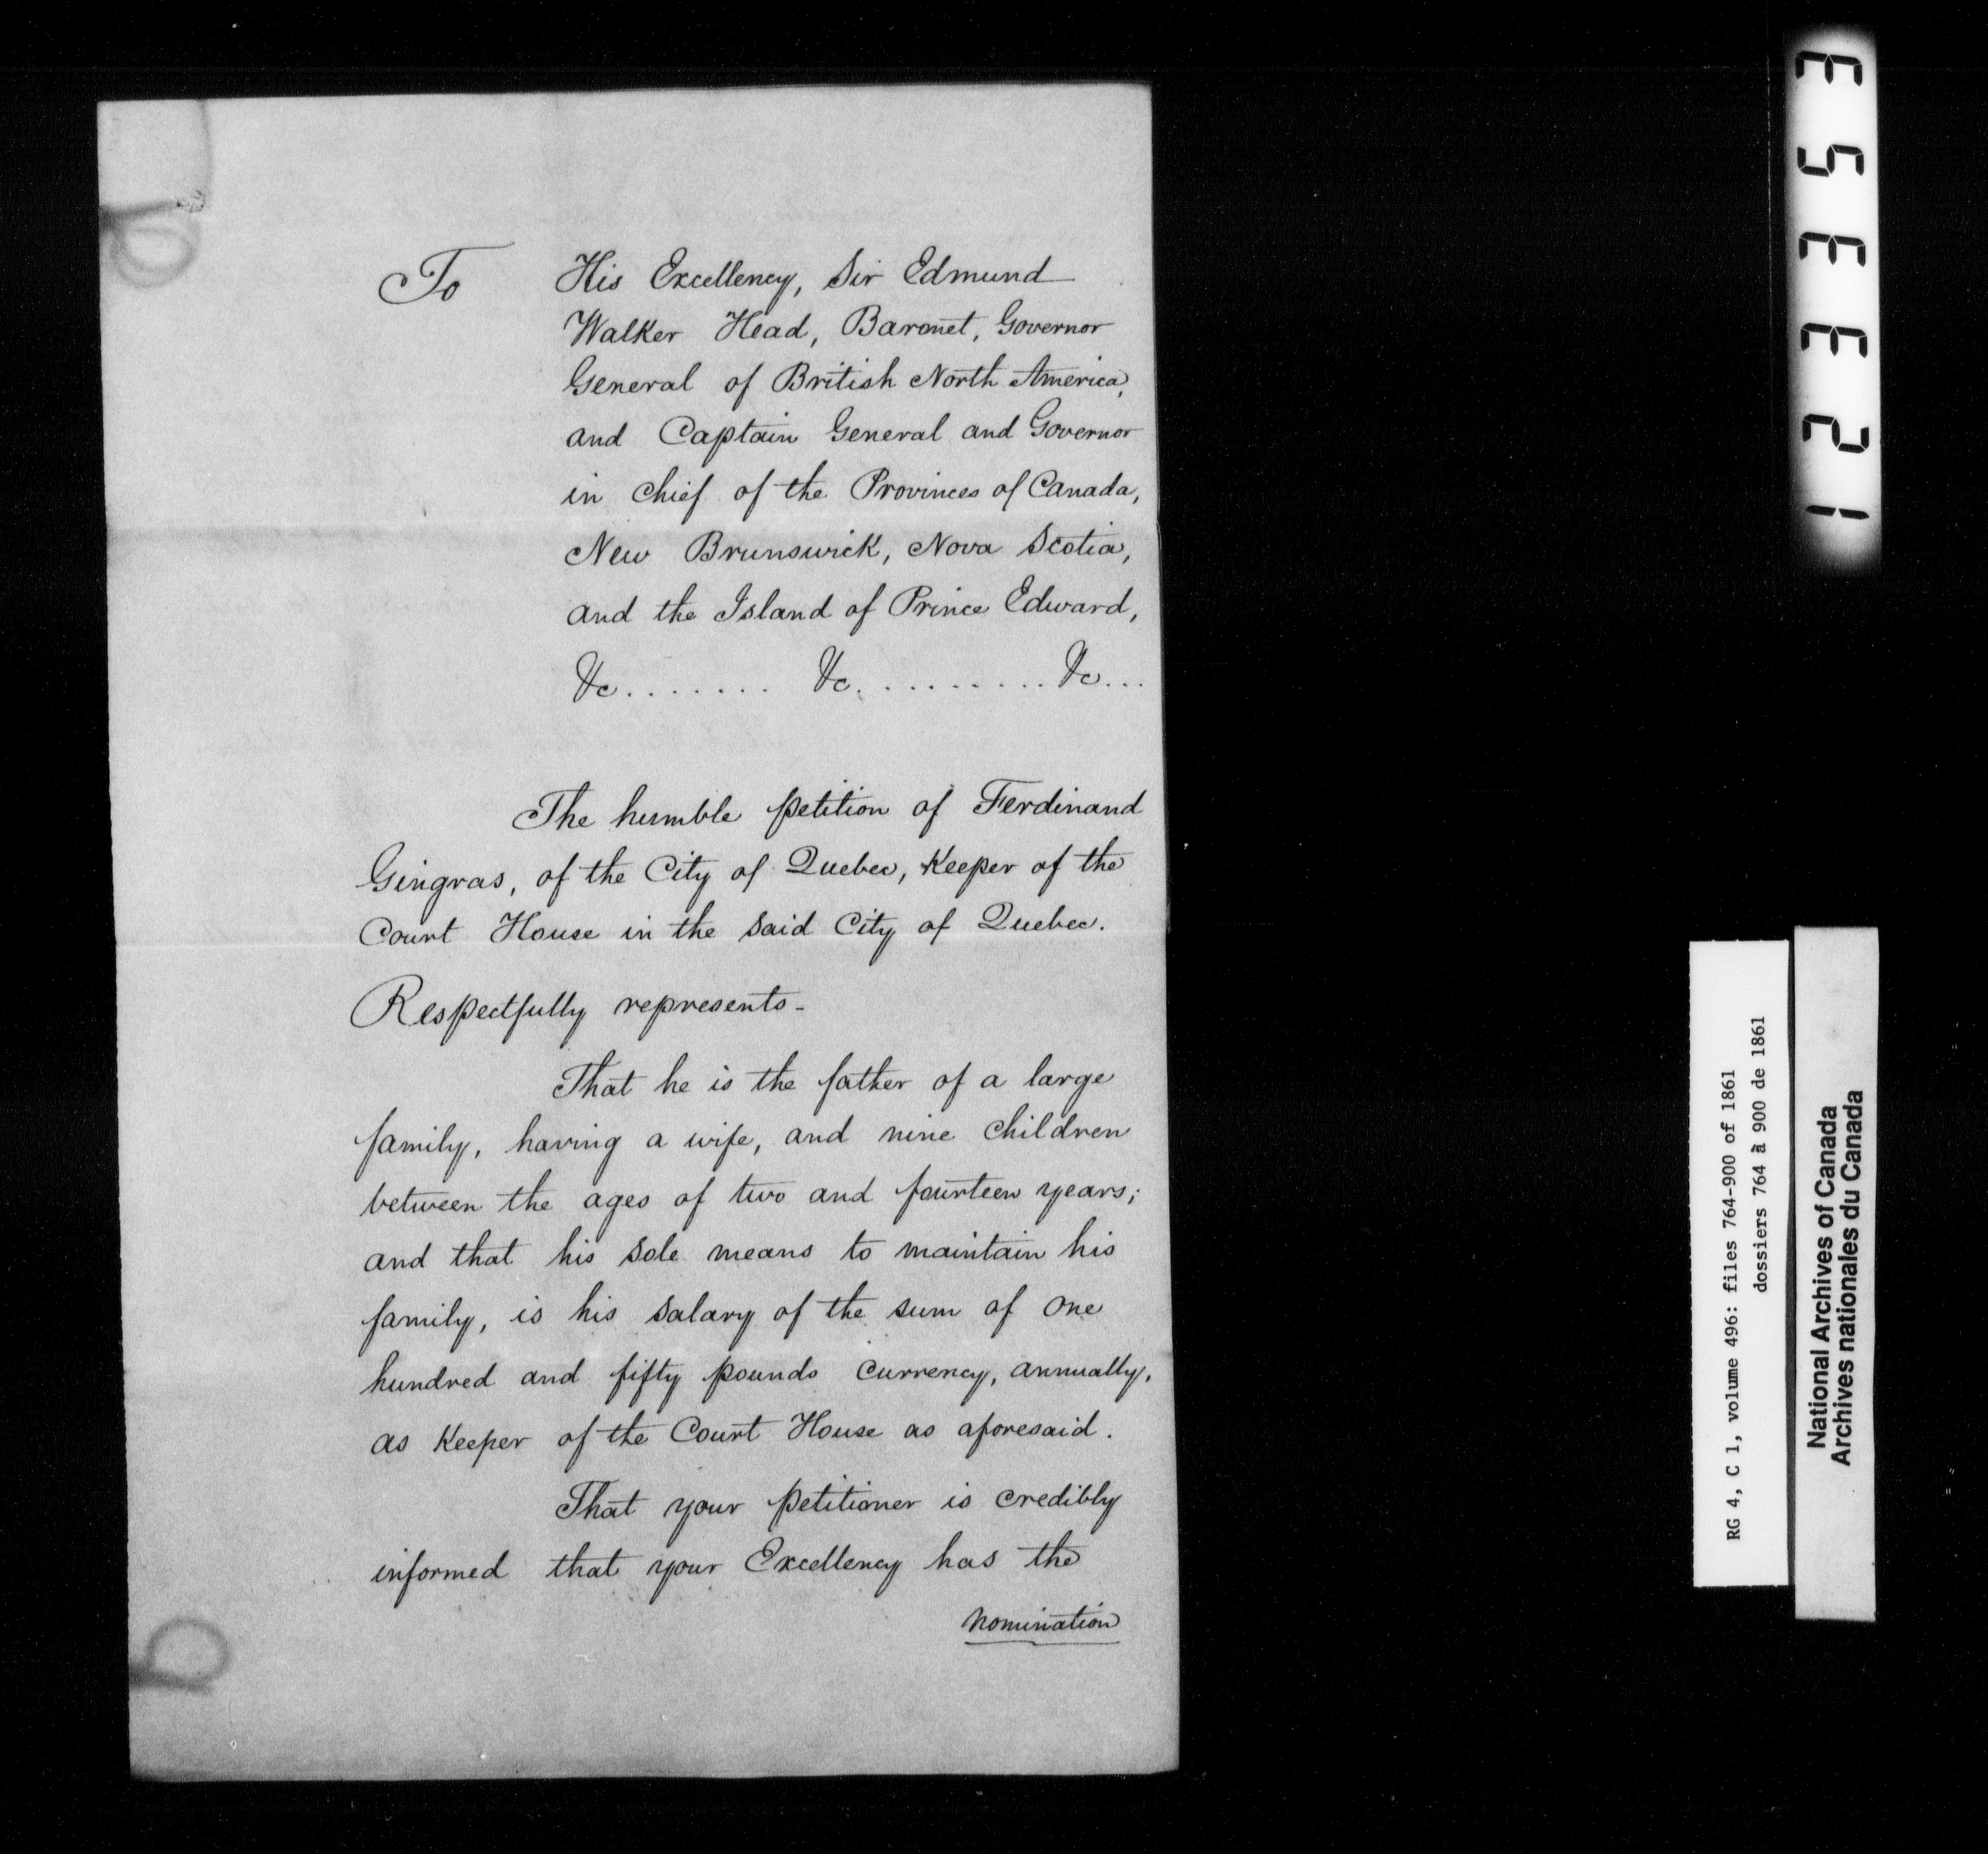 To His Excellency, Sir Edmund
Walker Head, Baronet, Governor
General of British North America,
and Captain General and Governor
in chief of the Provinces of Canada,
New Brunswick, Nova Scotia,
and the Island of Prince Edward,
&c........ &c.......... &c...
The humble petition of Ferdinand
Gingras, of the City of Quebec, Keeper of the
Court House in the said City of Quebec.
Respectfully represents-
That he is the father of a large
family, having a wife, and nine children
between the ages of two and fourteen years;
and that his sole means to maintain his
family, is his salary of the sum of one
hundred and fifty pounds currency, annually,
as Keeper of the Court House as aforesaid.
That your petitioner is credibly
informed that your Excellency has the
nomination
123353
RG 4, C 1, volume 496: files 764-900 of 1861
dossiers 764 à 900 de 1861
National Archives of Canada
Archives nationales du Canada